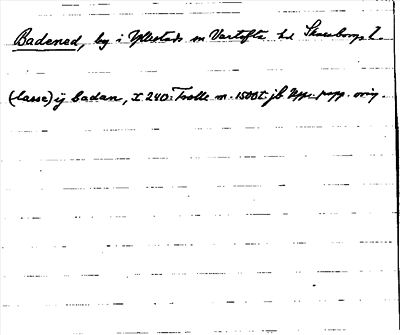 Badened, by i Yllestads sn Vartofta hd Skaraborgs l.
(lasse) ij badan, I 240 Trolle m. 1500t jb Upps. papp. orig.